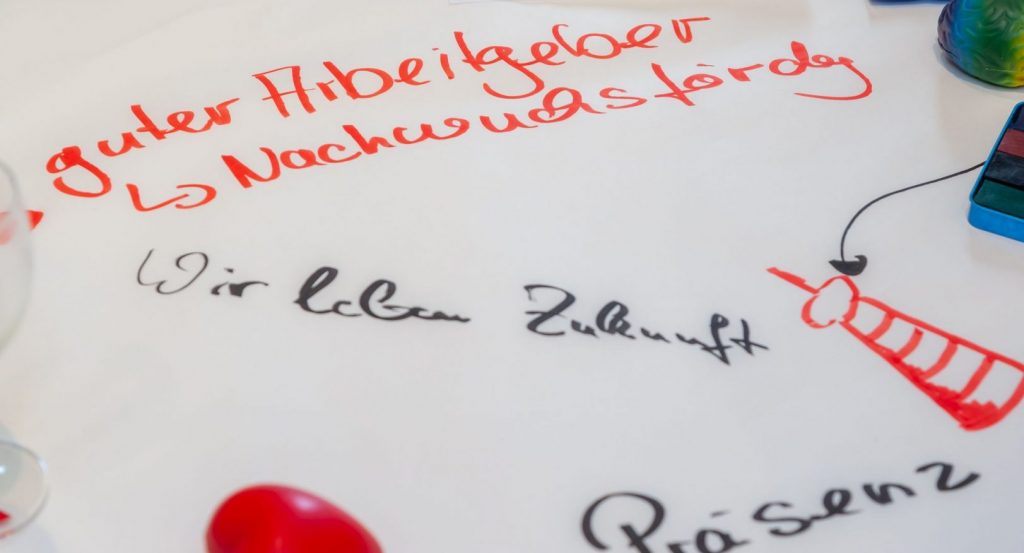 guter Arbeitgeber
↳ Nachwuchsfördg
Wir leben Zukunft
Präsenz